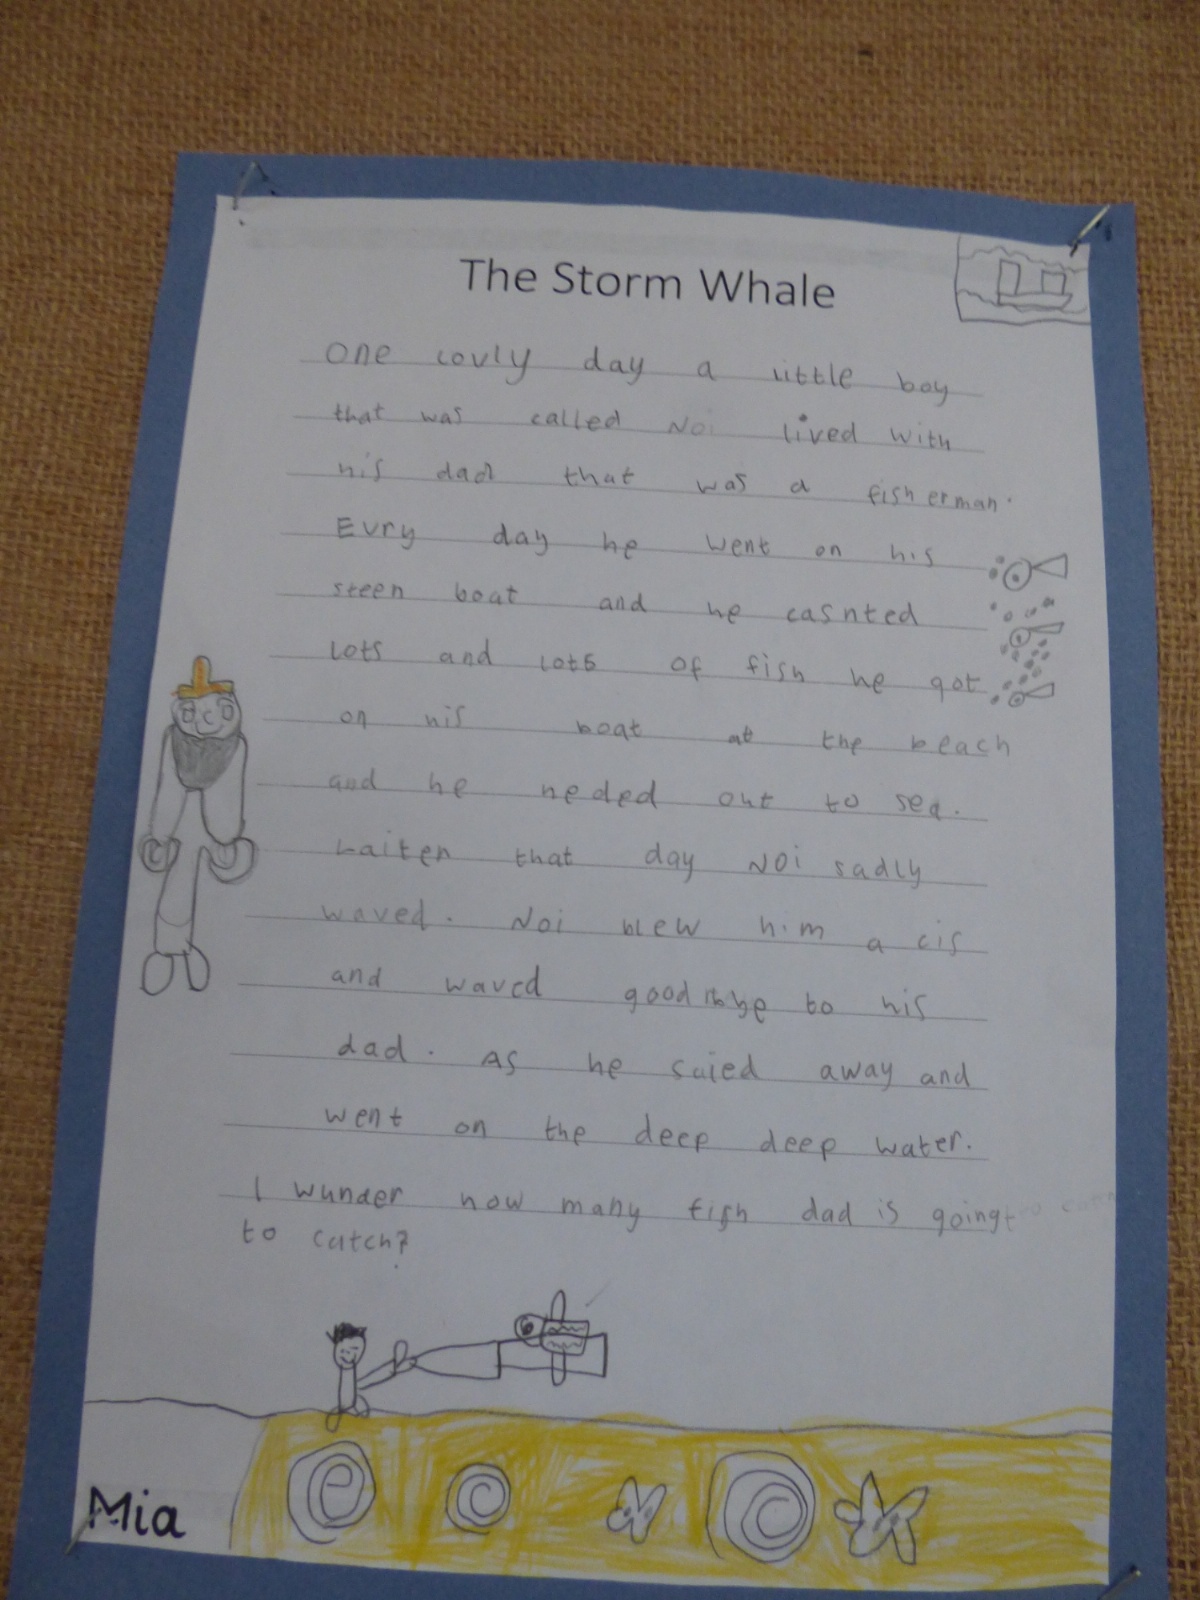 The Storm Whale
One lovly day a little boy
that was called Noi lived with
his dad that was a fisherman.
Evry day he went on his
steen boat and he cashted
lots and lots of fish he got
on his boat at the beach
and he heded out to sea.
Laiten that day Noi sadly
waved. Noi blew him a cis
and waved goodbye to his
dad. As he saied away and
went on the deep deep water.
I wunder how many fish dad is going
to catch?
Mia